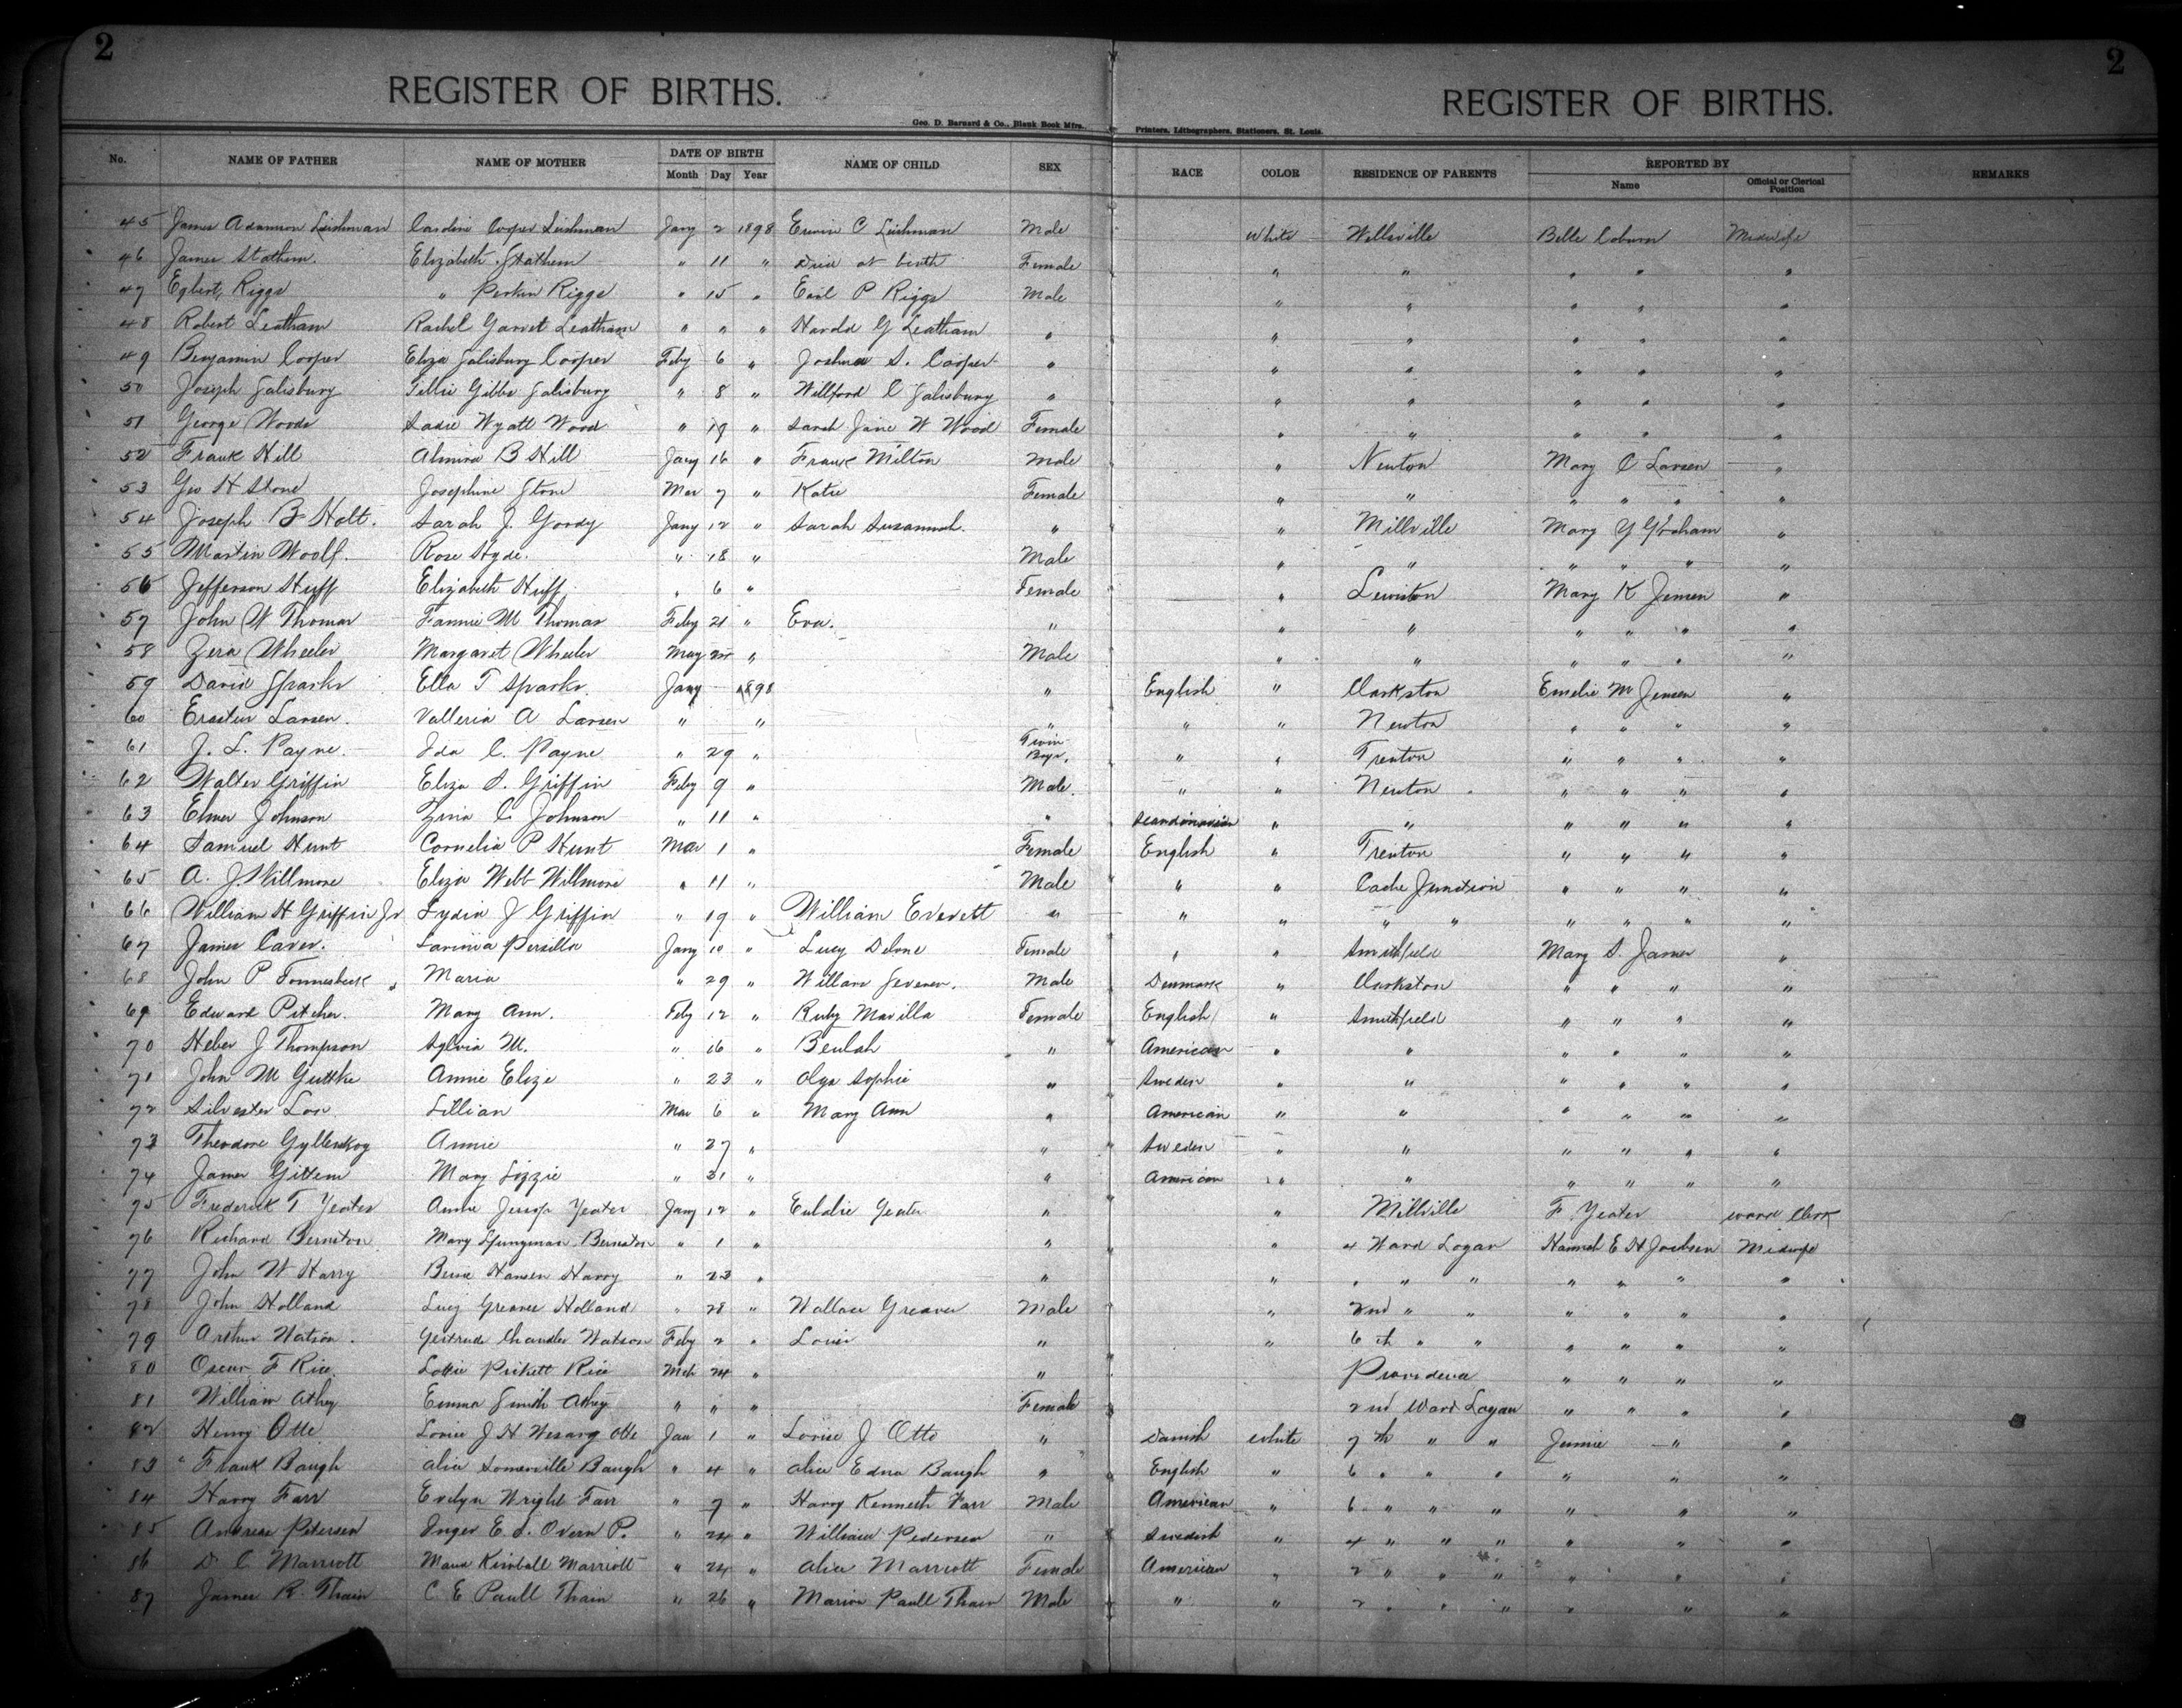 2 2
REGISTER OF BIRTHS. REGISTER OF BIRTHS.
Geo. D. Barnard & Co., Blank Book Mfrs., Printers, Lithographers, Stationers, St. Louis.
No. NAME OF FATHER NAME OF MOTHER DATE OF BIRTH NAME OF CHILD SEX RACE COLOR RESIDENCE OF PARENTS REPORTED BY REMARKS
Month Day Year Name Official or Clerical Position
45 James Adamson Leishman Caroline Cooper Leishman Jany 2 1898 Erwin C Leishman Male White Wellsville Belle Coburn Midwife
46 James Stathem. Elizabeth Stathem " 11 " Died at birth Female " " " " "
47 Egbert Riggs " Perkin Riggs " 15 " Earl P Riggs Male " " " " "
48 Robert Leatham Rachel Garret Leatham " " " Harold G Leatham " " " " " "
49 Benjamin Cooper Eliza Salisbury Cooper Feby 6 " Joshua S. Cooper " " " " " "
50 Joseph Salisbury Tillie Gibbs Salisbury " 8 " Willford C Salisbury " " " " " "
51 George Woods Sadie Wyatt Wood " 19 " Sarah Jane W Wood Female " " " " "
52 Frank Hill Almira B Hill Jany 16 " Frank Milton Male " Newton Mary C Larsen "
53 Geo H Stone Josephine Stone Mar 7 " Katie Female " " " " " "
54 Joseph B Holt. Sarah J. Goody Jany 12 " Sarah Susannah. " " Millville Mary Y Graham "
55 Martin Woolf. Rose Hyde. " 18 " Male " " " " " "
56 Jefferson Huff Elizabeth Huff " 6 " Female " Lewiston Mary K Jensen "
57 John W Thomas Fannie M Thomas Feby 21 " Eva. " " " " " " "
58 Zera Wheeler Margaret Wheeler May " Male " " " " " "
59 David Sparks Ella T Sparks. Jany 1898 " English " Clarkston Emelie M Jensen "
60 Erastus Larsen. Valleria A Larsen " " " " " Newton " " " "
61 J. L. Payne. Ida C. Payne " 29 " Twin Boys. " " Trenton " " " "
62 Walter Griffin Eliza S. Griffin Feby 9 " Male. " " Newton " " " "
63 Elmer Johnson Zina C Johnson " 11 " " Scandinavian " " " " " "
64 Samuel Hunt Cornelia P Hunt Mar 1 " Female English " Trenton " " " "
65 A. J. Willmore Eliza Webb Willmore " 11 " Male " " Cache Junction " " " "
66 William H Griffin Jr Lydia J Griffin " 19 " William Everett " " " " " " " " "
67 James Caver. Lavinia Persilla Jany 10 " Lucy Delone Female " " Smithfield Mary S. James "
68 John P Tonnesbeck Maria " 29 " Willard Severen. Male Denmark " Clarkston " " " "
69 Edward Pitcher. Mary Ann. Feby 12 " Ruby Marilla Female English " Smithfield " " " "
70 Heber J Thompson Sylvia M. " 16 " Beulah " American " " " " " "
71 John M Guttke Annie Elize " 23 " Olga Sophie " Sweden " " " " " "
72 Silvester Low. Lillian Mar 6 " Mary Ann " American " " " " " "
73 Theodore Gyllenskog Annie " 27 " " Sweden " " " " " "
74 James Gittens Mary Lizzie " 31 " " American " " " " " "
75 Frederick T Yeates Annie Jessop Yeates Jany 12 " Eulalie Yeates " " Millville F Yeates Ward Clerk
76 Richard Berntson Mary Berntson " 1 " " " 4 Ward Logan Hannah E H Jacobsen Midwife
77 John W Harry Hansen Harry " 23 " " " " " " " " " "
78 John Holland Lucy Greaves Holland " 28 " Wallace Greaves Male " 2nd " " " " " "
79 Arthur Watson. Gertrude Chandler Watson Feby 2 " Louis " " 6th " " " " " "
80 Oscar F Rice. Lottie Pickett Rice Mch 24 " " Providence " " " "
81 William Athey Emma Smith Athey " " " Female 2nd Ward Logan " " " "
82 Henry Otte Louise J H Wesarg Otte Jan 1 " Louise J Otte " Danish White 7th " " Jennie " "
83 " Frank Baugh Alice Somerville Baugh " 4 " Alice Edna Baugh " English " 6 " " " " " "
84 Harry Farr Evelyn Wright Farr " 7 " Harry Kenneth Farr Male American " 6 " " " " " "
85 Andreas Petersen Inger E. S. Oveson P. " 24 " William Pedersen " Swedish " 4 " " " " " "
86 D. C Marriott Maud Kimball Marriott " 24 " Alice Marriott Female American " 2 " " " " " "
87 James R. Thain C. E Paull Thain " 26 " Marion Paull Thain Male " " 2 " " " " " "